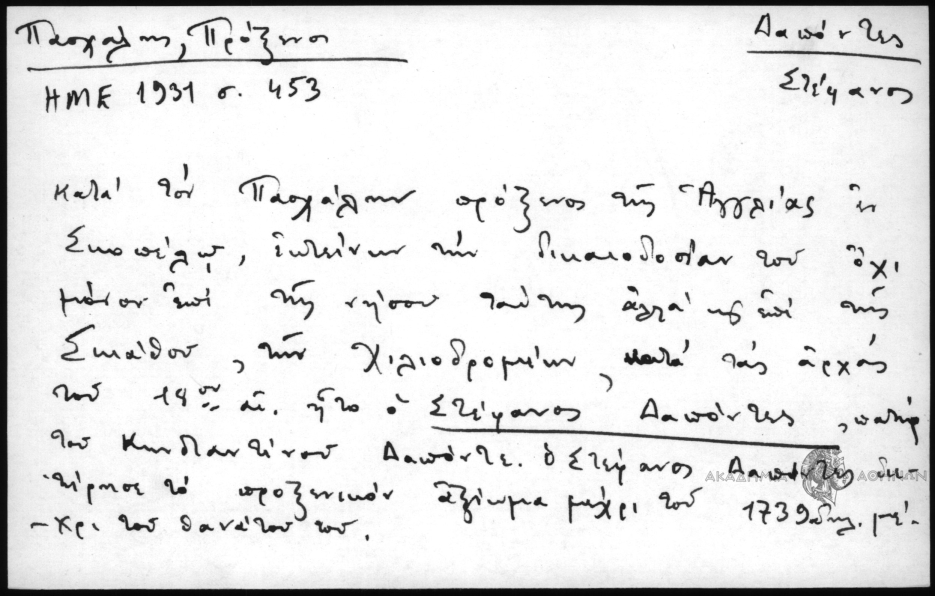 Πασχάλης, Πρόξενοι
Δαπόντες
Στέφανος
ΗΜΕ 1931 σ. 453
κατά τόν Πασχάλην πρόξενος τῆς Ἀγγλίας ἐν
Σκοπέλῳ, ἐκτείνων τήν δικαιοδοσίαν του ὄχι
μόνον ἐπί τῆς νήσου ταύτης ἀλλά καί ἐπί τῆς
Σκιάθου, τῶν Χιλιοδρομίων, κατά τάς ἀρχάς
τοῦ 18ου αἰ. ἦτο ὁ Στέφανος Δαπόντες, πατήρ
τοῦ Κωνσταντίνου Δαπόντε. ὁ Στέφανος Δαπόντες δι-
ετήρησε τό προξενικόν ἀξίωμα μέχρι τοῦ 1739 δηλ. μέ-
χρι τοῦ θανάτου του.
ΑΚΑΔΗΜΙΑ ΑΘΗΝΩΝ